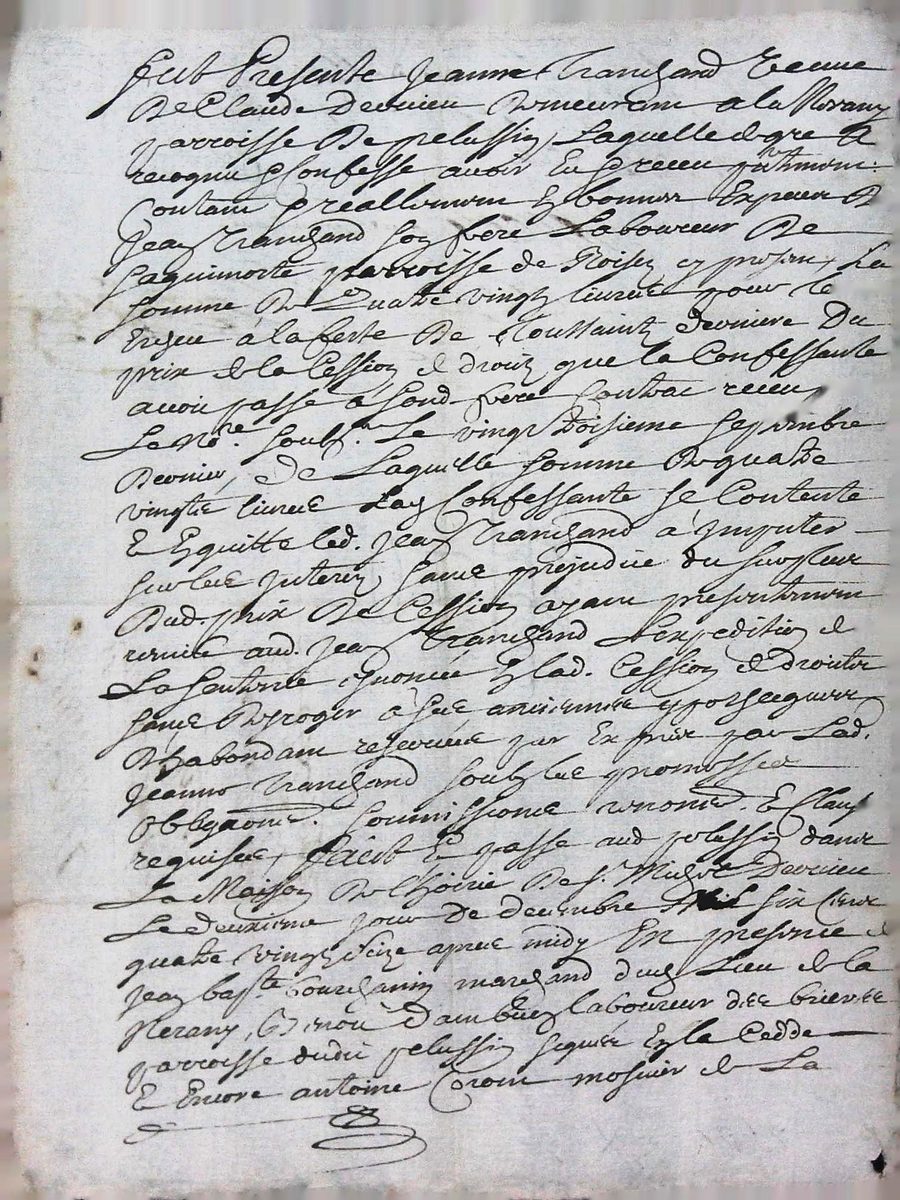 Feut Presente Jeanne Tranchand veuve
De Claude Dervieu Demeurant a la Nerany
parroisse De pelussin, Laquelle de gré A
recognu & Confesse avoir Eu & receu pntement
Contant & reallement En bonnes Especes De
Jean Tranchand son frere Laboureur De
parroisse de Roisey cy present, La
somme De Quatre vingts livres pour le
à la feste De Toussaintz derniere Du
prix de la Cession de droitz que la Confessante
avoir passé à sond. frere Contrac receu
Le No.re soub.né Le vingt troisieme septembre
Dernier, De Laquelle somme De quatre
vingts livres Lad. Confessante se Contente
& En quitte led. Jean Tranchand à Imputer
sur les Interetz, sans prejudice du surplus
Dud. prix De Cession ayant presentement
remis aud. Jean Tranchand L'expedition de
La sentence enoncée En lad. Cession de droitz
sans Desroger à ses anciennes ypothecques
D'habondant reservées par Exprés par Lad.
Jeanne Tranchand soubz les promesses
Obligaons. soumissions renonc. & Clauses
requises, Faict & passé aud pelussin dans
La Maison De De St. Michel Dervieu
Le deuxieme jour De decembre Mil six Cens
quatre vingts seize apres midy En presence de
Jean bapte. marchand dud. Lieu de la
Nerany, laboureur des
parroisse dudit pelussin signés En la Cedde
& Encore antoine mosnier de La